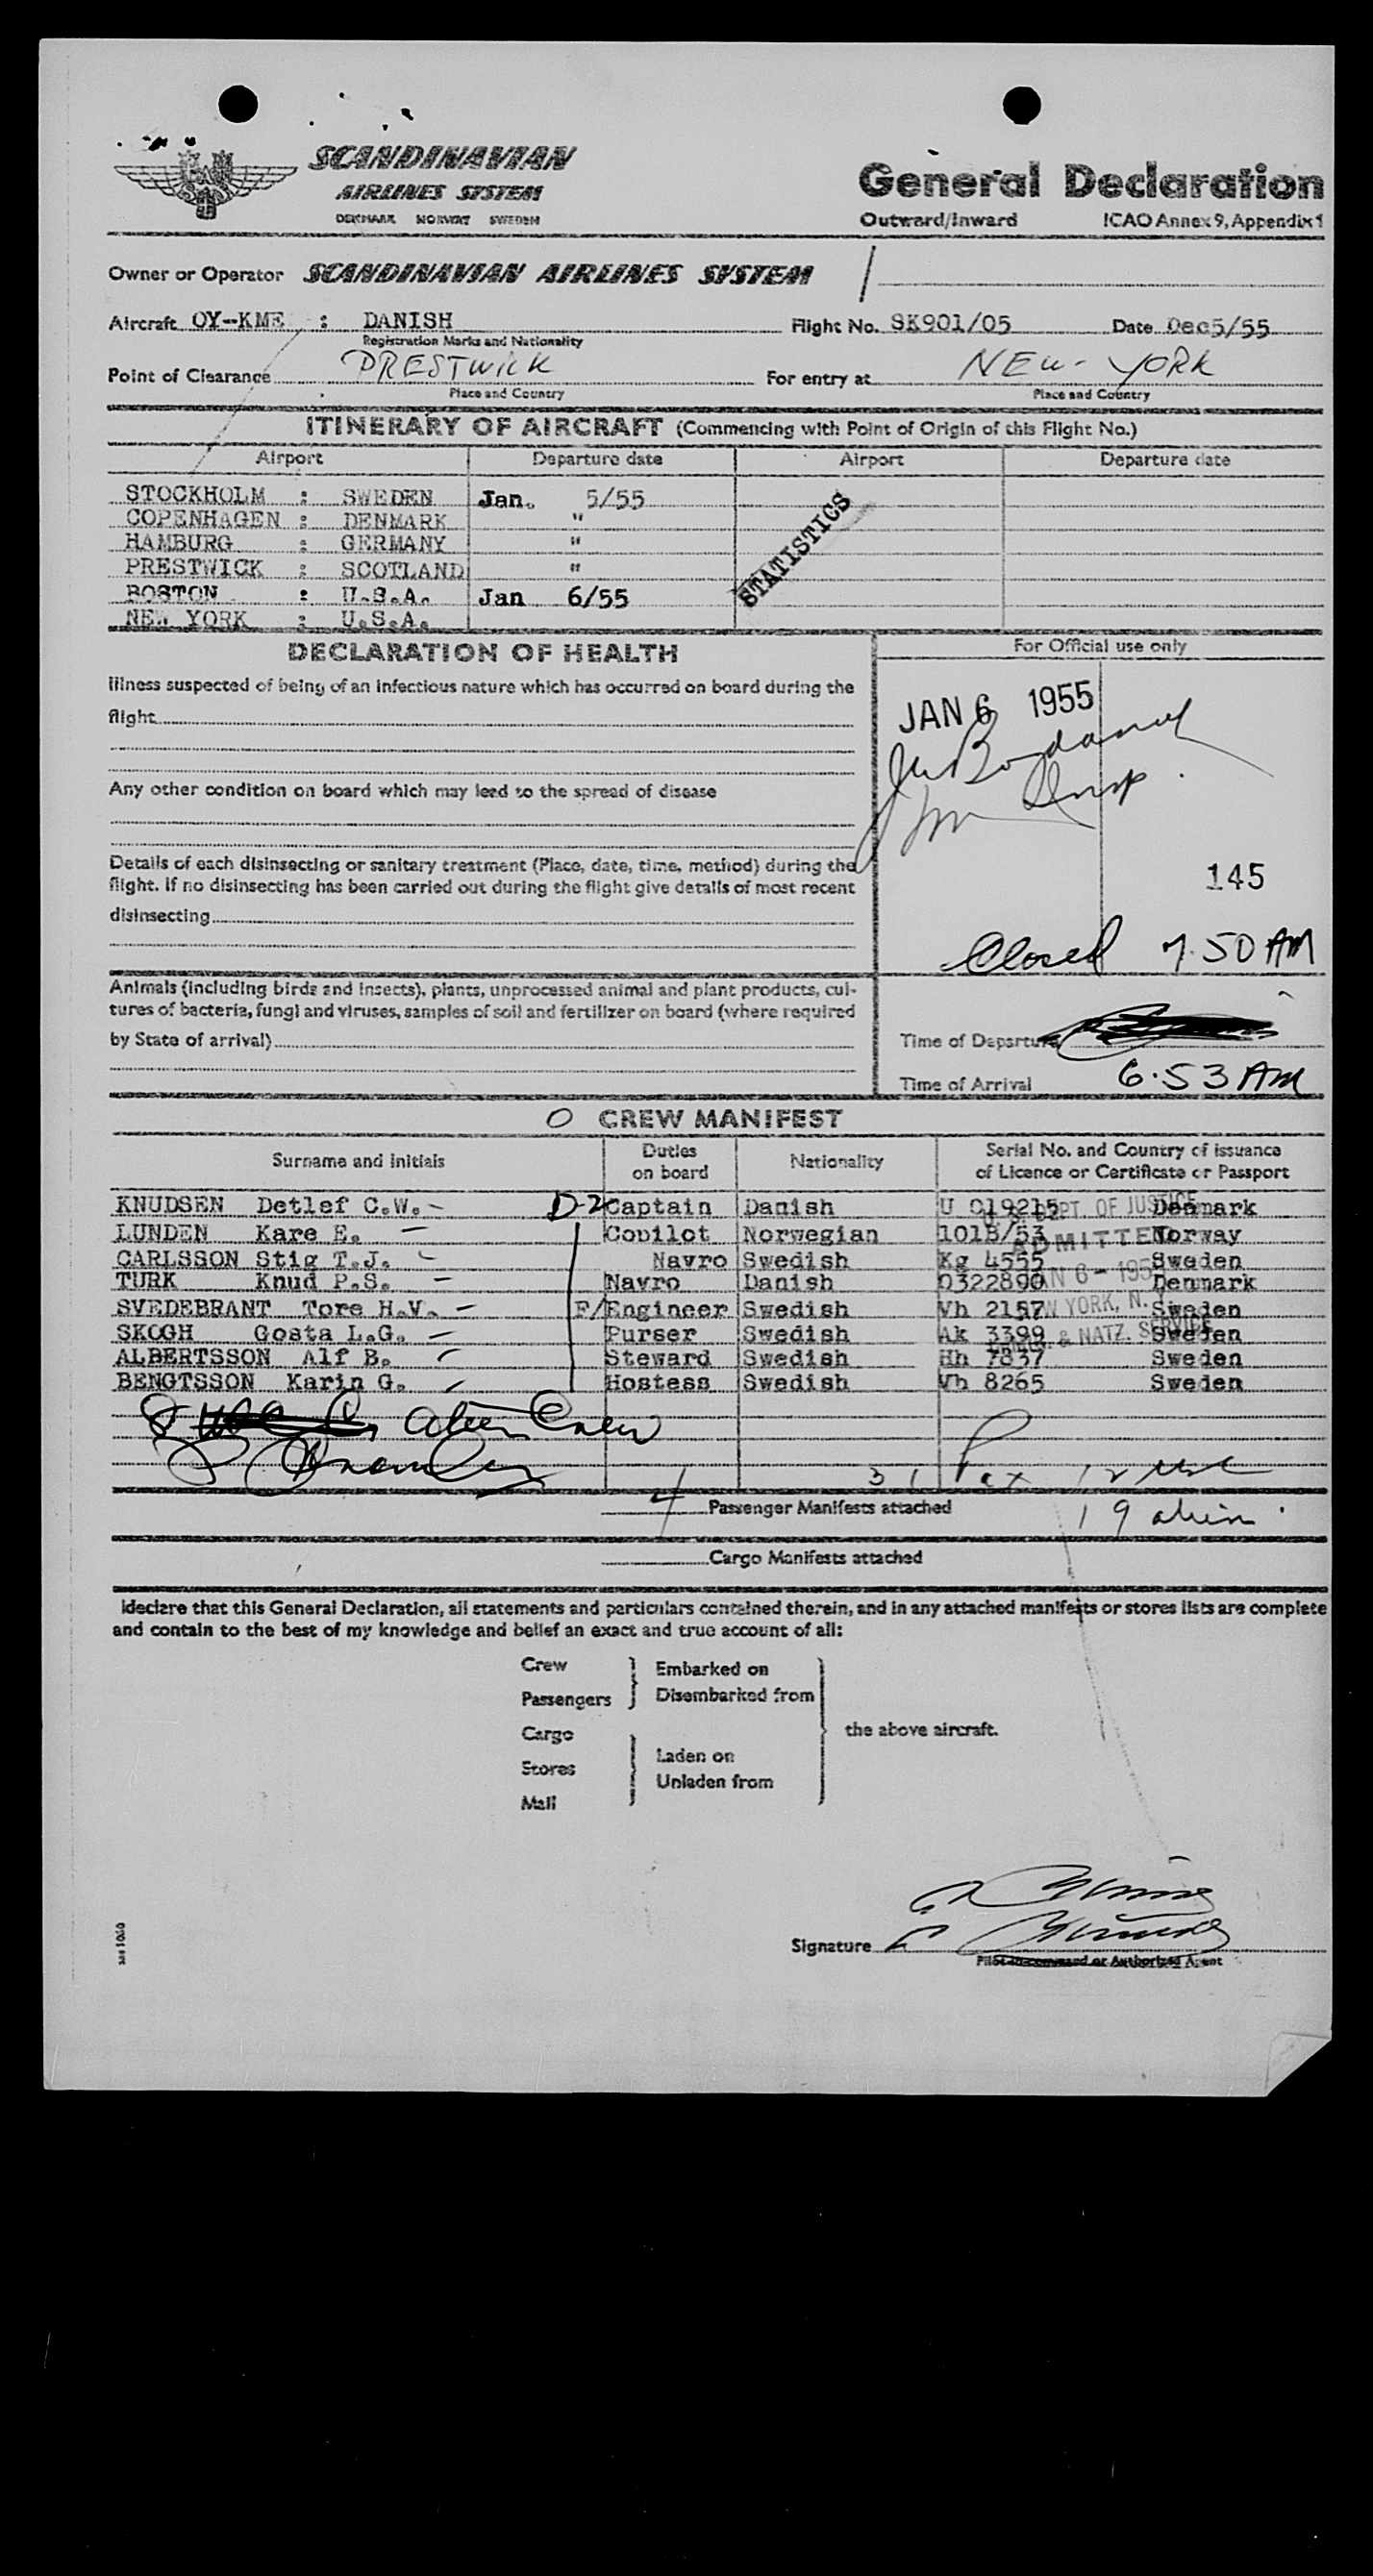 SCANDINAVIAN
AIRLINES SYSTEM
DENMARK NORWAY SWEDEN
General Declaration
Outward/Inward ICAO Annex 9, Appendix 1
Owner or Operator SCANDINAVIAN AIRLINES SYSTEM
Aircraft OY-KME : DANISH Flight No. SK901/05 Date Dec5/55
Registration Marks and Nationality
Point of Clearance PRESTWICK For entry at NEW-YORK
Place and Country Place and Country
ITINERARY OF AIRCRAFT (Commencing with Point of Origin of this Flight No.)
Airport Departure date Airport Departure date
STOCKHOLM : SWEDEN Jan. 5/55
COPENHAGEN : DENMARK "
HAMBURG : GERMANY "
PRESTWICK : SCOTLAND "
BOSTON : U.S.A. Jan 6/55
NEW YORK : U.S.A.
STATISTICS
DECLARATION OF HEALTH
For Official use only
Illness suspected of being of an infectious nature which has occurred on board during the
flight
JAN 6 1955
Any other condition on board which may lead to the spread of disease
Details of each disinsecting or sanitary treatment (Place, date, time, method) during the
flight. If no disinsecting has been carried out during the flight give details of most recent
disinsecting
145
Closed 7.50 AM
Animals (including birds and insects), plants, unprocessed animal and plant products, cul-
tures of bacteria, fungi and viruses, samples of soil and fertilizer on board (where required
by State of arrival)
Time of Departure
Time of Arrival 6.53 AM
O CREW MANIFEST
Surname and initials Duties on board Nationality Serial No. and Country of issuance of Licence or Certificate or Passport
KNUDSEN Detlef C.W. D-2 Captain Danish U 019215 Denmark
LUNDEN Kare E. Copilot Norwegian 1015/53 Norway
CARLSSON Stig T.J. Navro Swedish Kg 4555 Sweden
TURK Knud P.S. Navro Danish 0322890 Denmark
SVEDEBRANT Tore H.V. F/Engineer Swedish Vh 2157 Sweden
SKOGH Gosta L.G. Purser Swedish Ak 3399 Sweden
ALBERTSSON Alf B. Steward Swedish Hh 7837 Sweden
BENGTSSON Karin G. Hostess Swedish Vh 8265 Sweden
DEPT. OF JUSTICE
ADMITTED
JAN 6 - 195
NEW YORK, N.
& NATZ. SERVICE
8 alien Crew
31 Pax 12 USC
4 Passenger Manifests attached
19 alien
Cargo Manifests attached
I declare that this General Declaration, all statements and particulars contained therein, and in any attached manifests or stores lists are complete
and contain to the best of my knowledge and belief an exact and true account of all:
Crew
Passengers
Embarked on
Disembarked from
Cargo
Stores
Mail
Laden on
Unladen from
the above aircraft.
Signature
Pilot-in-command or Authorized Agent